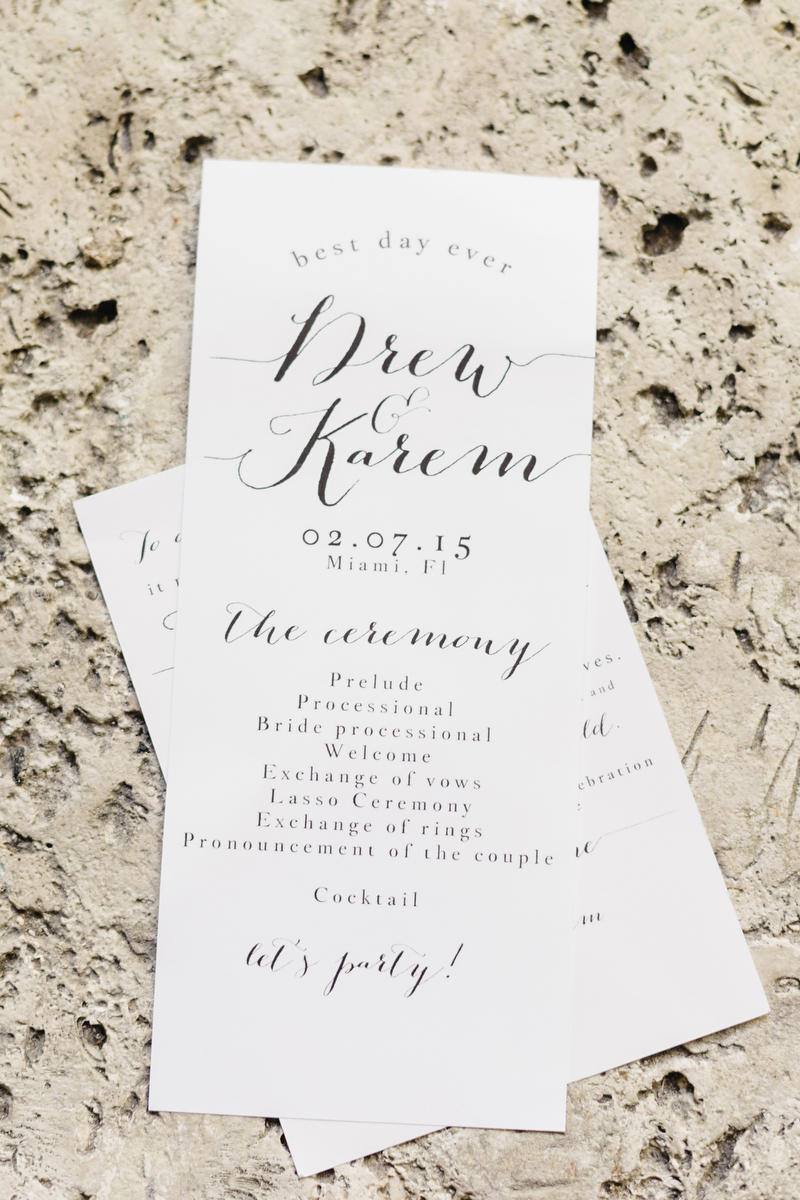 best day ever
Drew
&
Karem
02.07.15
Miami, Fl
the ceremony
Prelude
Processional
Bride processional
Welcome
Exchange of vows
Lasso Ceremony
Exchange of rings
Pronouncement of the couple
Cocktail
let's party!
To
it
ves.
and
ld.
ebration